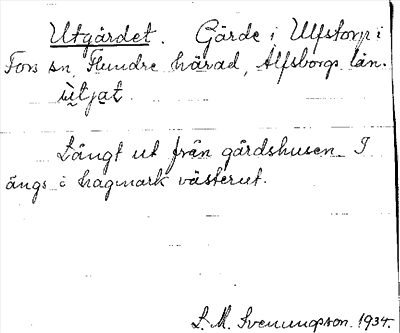 Utgärdet. Gärde i Ulfstorp i
Fors sn, Flundre härad, Älfsborgs län.
ùtjat.
Långt ut från gårdshusen. I
ängs o hagmark västerut.
S. M. Svenungson. 1934.